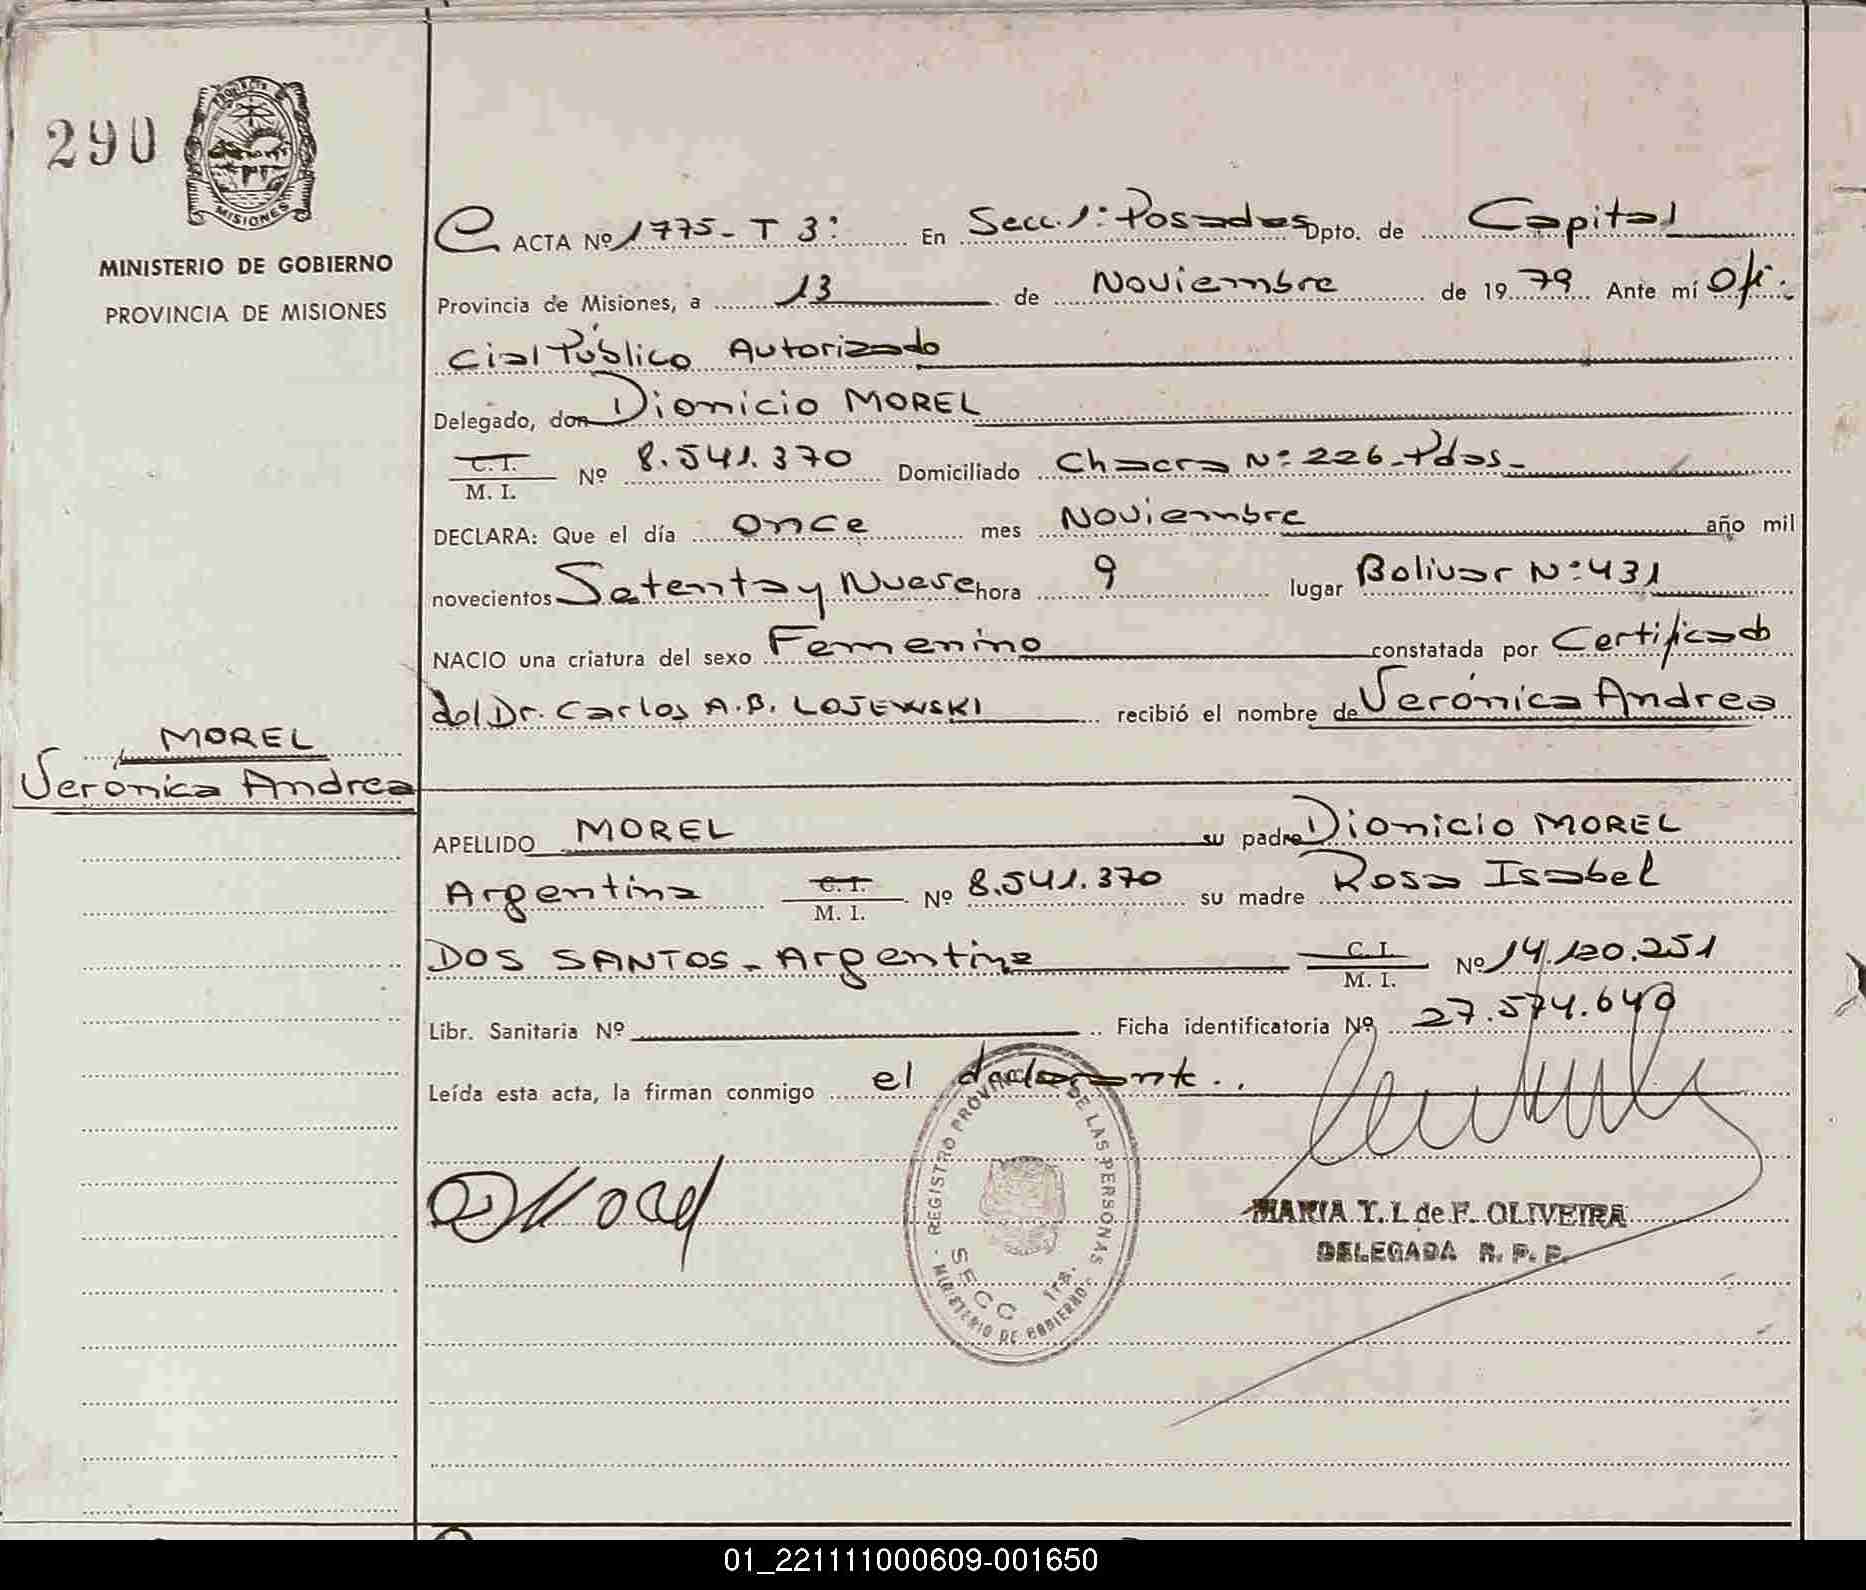 290
PROVINCIA
MISIONES
MINISTERIO DE GOBIERNO
PROVINCIA DE MISIONES
MOREL
Verónica Andrea
ACTA Nº 1775 - T 3º En Secc. 1º Posadas Dpto. de Capital
Provincia de Misiones, a 13 de Noviembre de 1979 Ante mí Ofi-
cial Público Autorizado
Delegado, don Dionicio MOREL
C. I.
M. I. Nº 8.541.370 Domiciliado Chacra Nº 226 - Pdas -
DECLARA: Que el día once mes Noviembre año mil
novecientos Setenta y Nueve hora 9 lugar Bolivar Nº 431
NACIO una criatura del sexo Femenino constatada por Certificado
del Dr. Carlos A.B. LOJEWSKI recibió el nombre de Verónica Andrea
APELLIDO MOREL su padre Dionicio MOREL
Argentina C. I. M. I. Nº 8.541.370 su madre Rosa Isabel
DOS SANTOS - Argentina C. I. M. I. Nº 14.120.251
Libr. Sanitaria Nº Ficha identificatoria Nº 27.574.640
Leída esta acta, la firman conmigo el declarante..
D Morel
REGISTRO PROVINCIAL DE LAS PERSONAS
SECC 1ra.
MINISTERIO DE GOBIERNO
MARIA T. I. de F. OLIVEIRA
DELEGADA R. P. P.
01_221111000609-001650